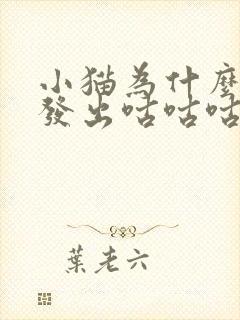 小猫為什麼
發出咕咕咕
葉老六